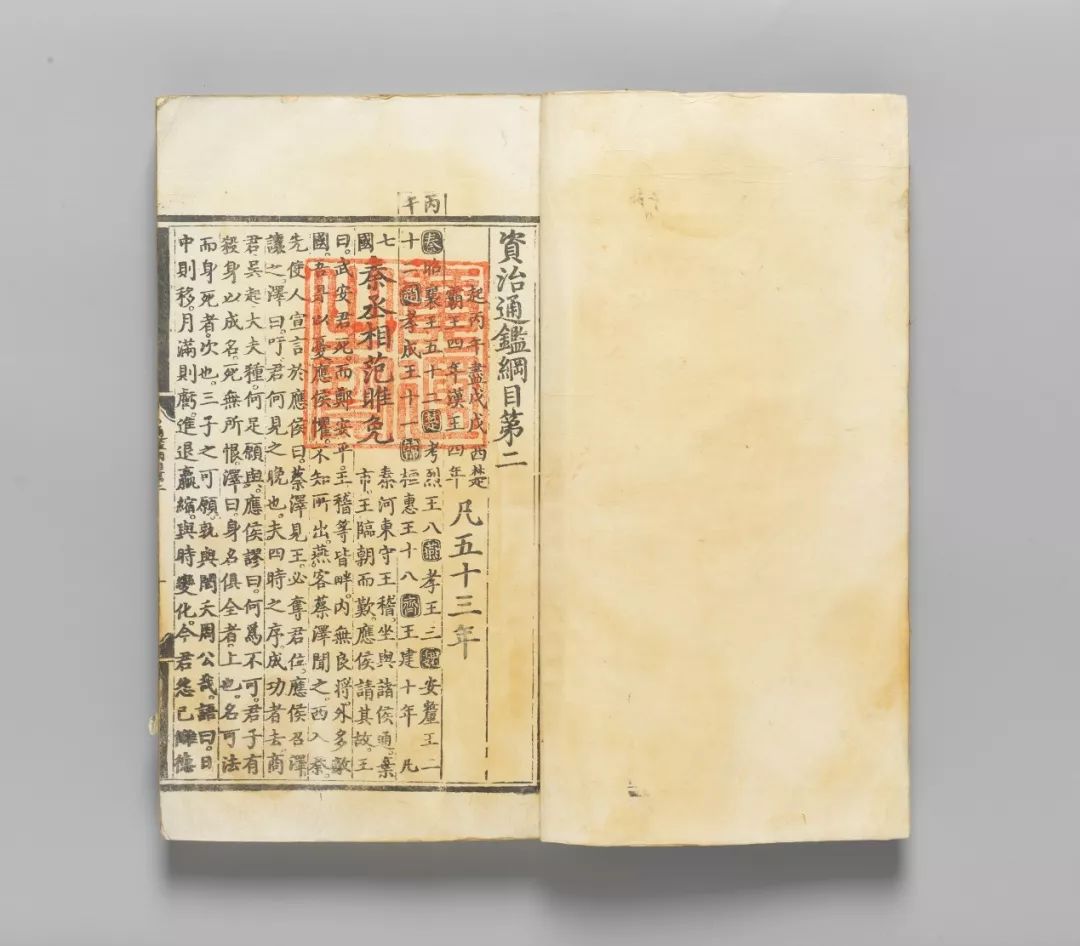 資治通鑑綱目第二
起丙午盡戊戌西楚
霸王四年漢王四年
凡五十三年
丙午
秦昭襄王五十二楚考烈王八燕孝王三魏安釐王二
十二趙孝成王十一韓桓惠王十八齊王建十年凡
七
國
秦丞相范雎免
秦河東守王稽。坐與諸侯通。棄
市。王臨朝而歎。應侯請其故。王
曰。武安君死。而鄭安平。王稽等皆畔。內無良將。外多敵
國。吾是以憂。應侯懼。不知所出。燕客蔡澤聞之。西入秦。
先使人宣言於應侯曰。蔡澤見王。必奪君位。應侯召澤
讓之。澤曰。吁。君何見之晚也。夫四時之序。成功者去。商
君吳起。大夫種。何足願與。應侯謬曰。何爲不可。君子有
殺身以成名。死無所恨。澤曰。身名俱全者。上也。名可法
而身死者。次也。三子之可願。孰與閎夭周公哉。語曰。日
中則移。月滿則虧。進退嬴縮。與時變化。今君怨已讎。德